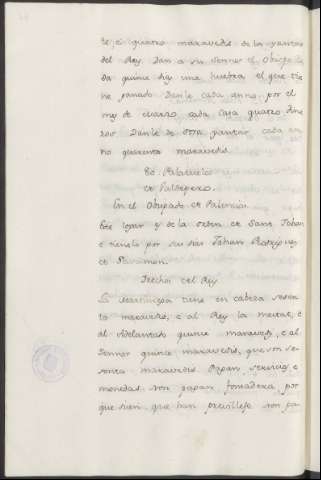 te e quatro maravedis de la yantar
del Rey. Dan a su Sennor el Obispo ca
da quince dias una huebra el que tie
ne ganado. Danle cada anno por el
mes de Marzo cada casa quatro dine
ros. Danle de otra yantar cada an
no quarenta maravedis.
80. Palaciolo
de Valdepero.
En el Obispado de Palencia.
Este logar es de la orden de Sant Johan
e tienelo por su vida Johan Rodriguez
de Sasamon.
Drechos del Rey
La Martiniega tiene en cabeza sesen
ta maravedis, e al Rey la meitat, e
al Adelantado quince maravedis, e al
Sennor quince maravedis, que son se
senta maravedis. Pagan servicios e
monedas. Non pagan fonsadera, por
que dicen que han previllejo. Non pa